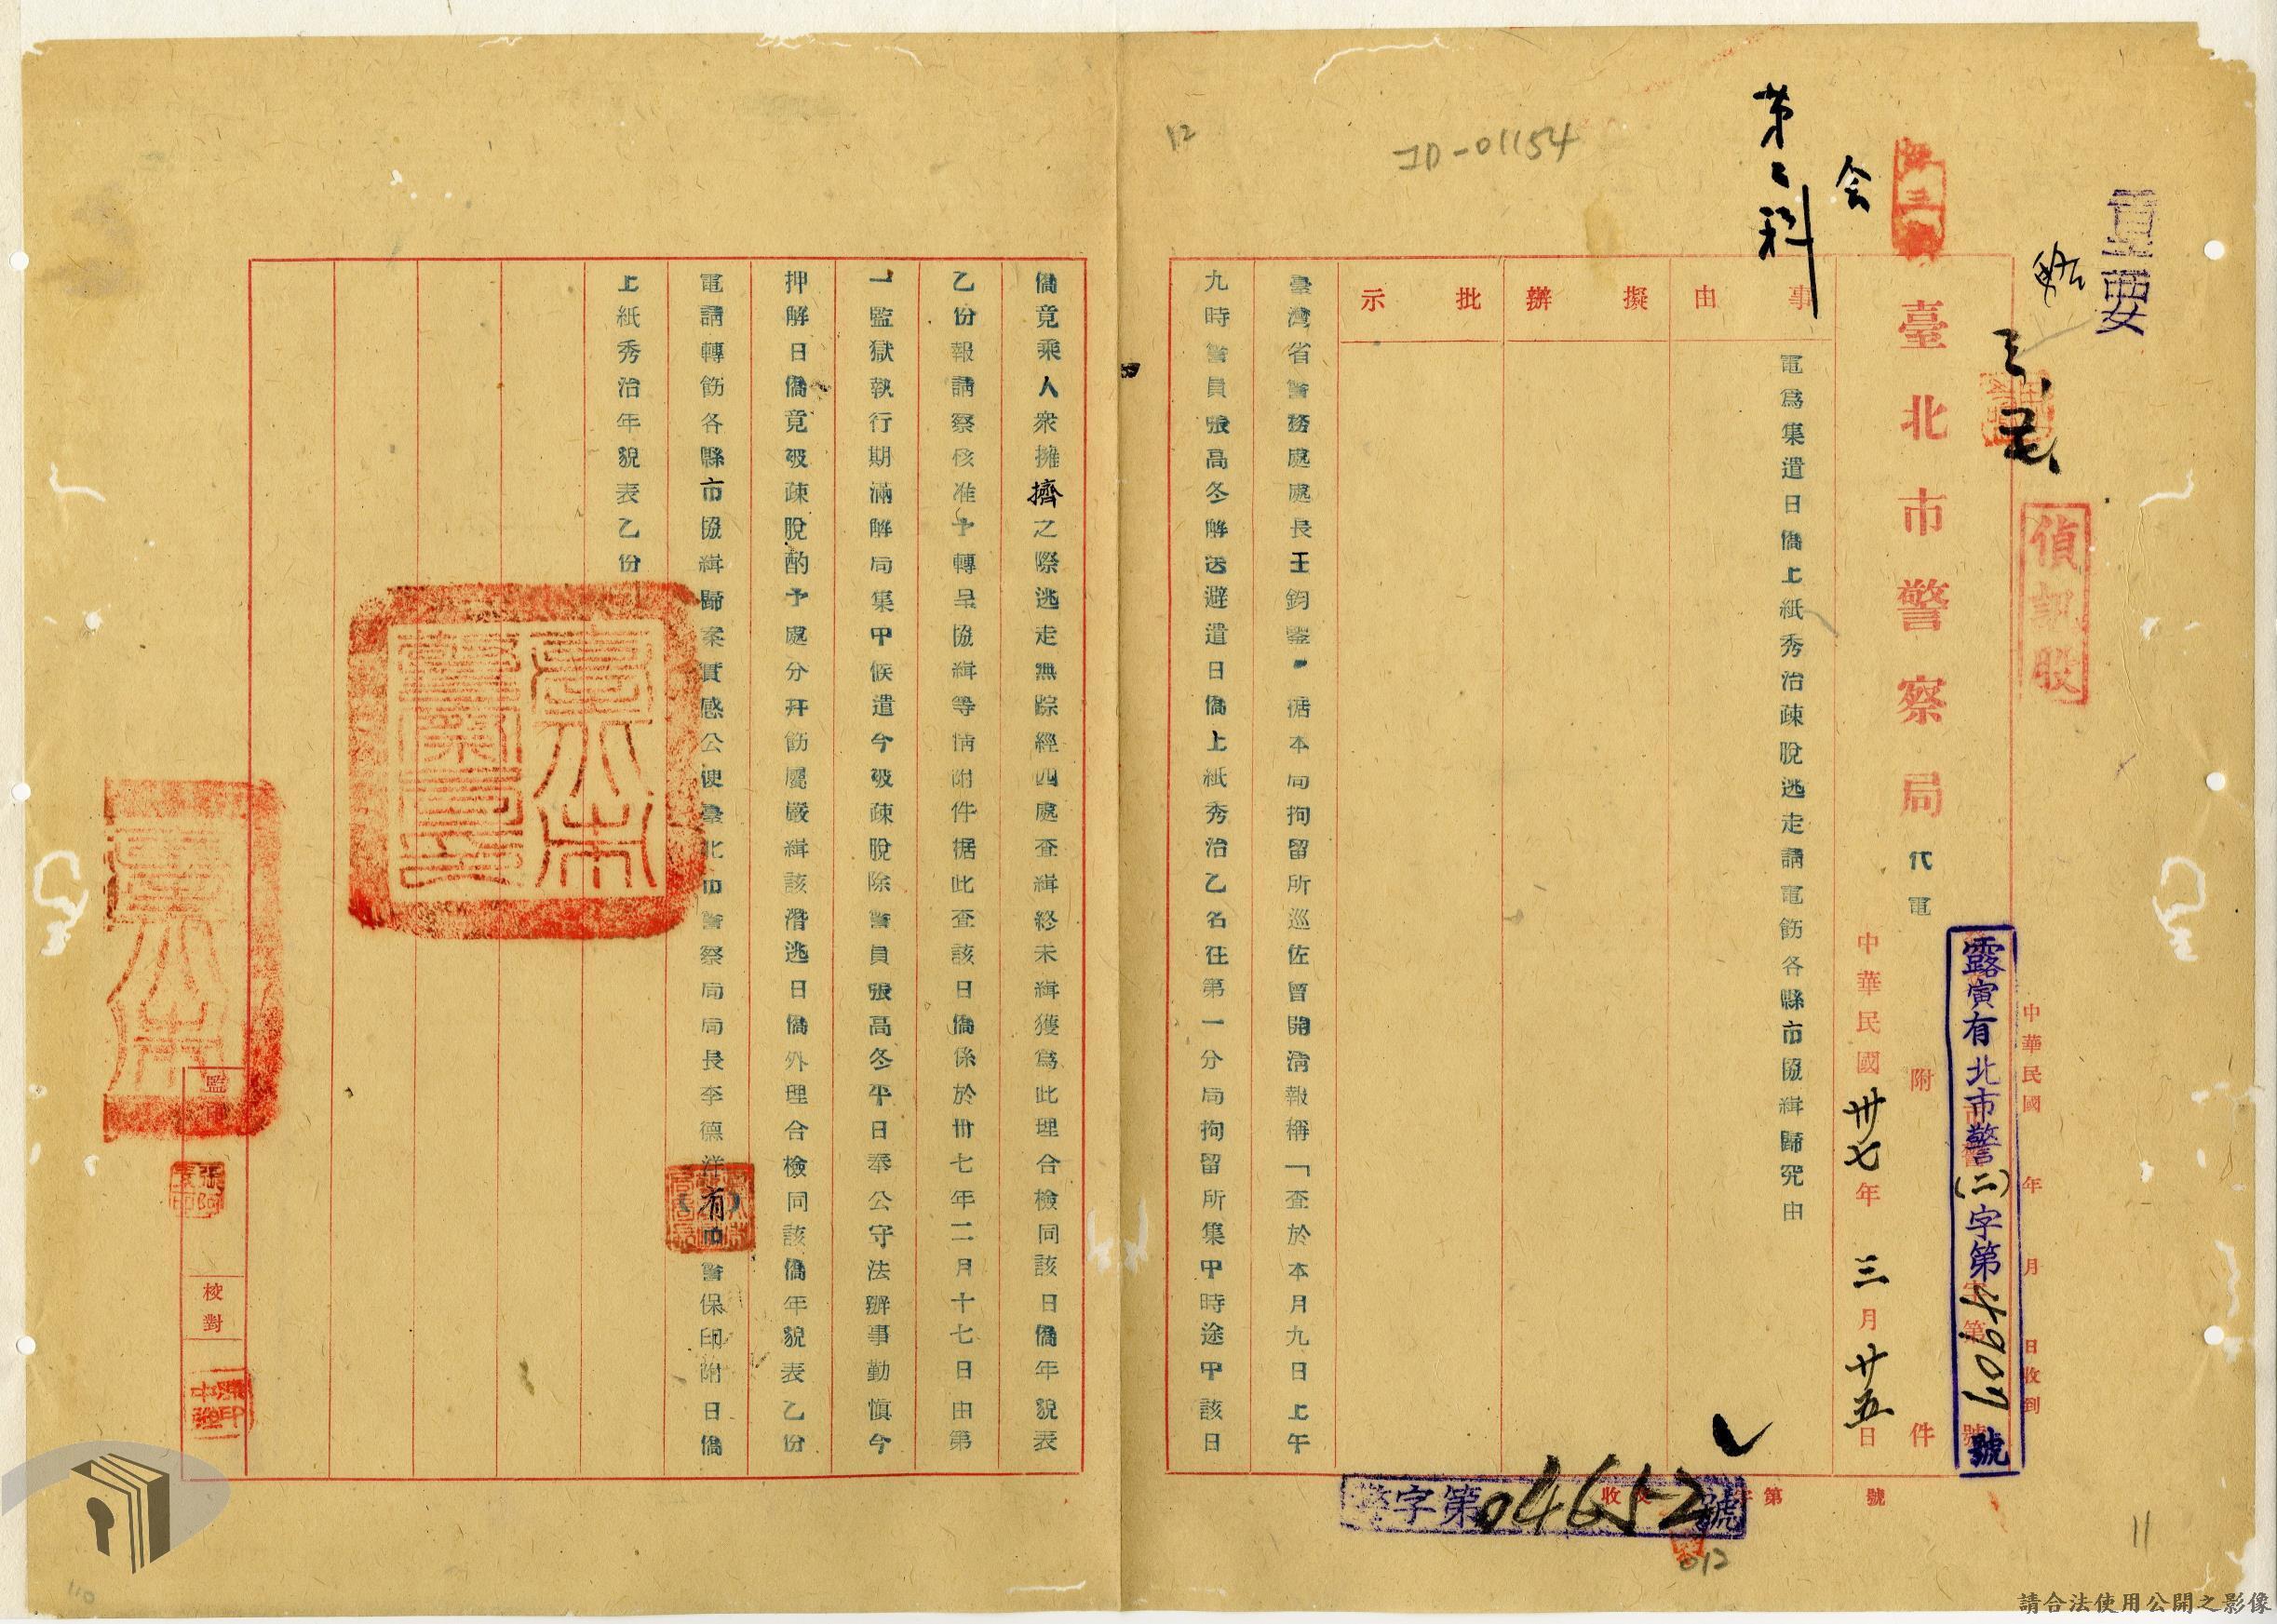 重要
偵訊股
中華民國 年 月 日收到
露寅有北市警(二)字第4907號
臺北市警察局代電
附件
中華民國卅七年三月廿五日
会
第二科
JD-01154
事由
電爲集遣日僑上紙秀治疎脫逃走請電飭各縣市協緝歸究由
擬辦
批示
臺灣省警務處處長王鈞鑒 据本局拘留所巡佐曾開淸報稱「査於本月九日上午
九時警員張高冬解送避遣日僑上紙秀治乙名在第一分局拘留所集中時途中該日
12
僑竟乘人衆擁擠之際逃走無踪經四處查緝終未緝獲爲此理合檢同該日僑年貌表
乙份報請察核准予轉呈協緝等情附件据此査該日僑係於卅七年二月十七日由第
一監獄執行期滿解局集中候遣今被疎脫除警員張高冬平日奉公守法辦事勤慎今
押解日僑竟被疎脫酌予處分幷飭屬嚴緝該潛逃日僑外理合檢同該僑年貌表乙份
電請轉飭各縣市協緝歸案實感公便臺北市警察局局長李德洋有印警保印附日僑
上紙秀治年貌表乙份
監印
校對
收文 字第 號
警字第04652號
012
11
110
請合法使用公開之影像